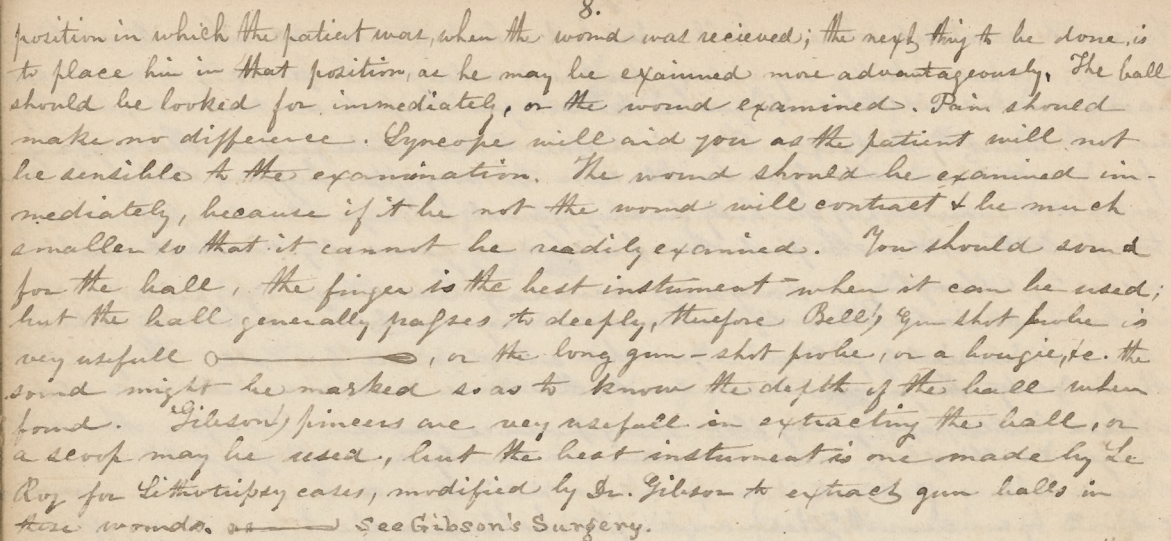 8.
position in which the patient was, when the wound was recieved; the next thing to be done, is
to place him in that position, as he may be examined more advantageously. The ball
should be looked for immediately, or the wound examined. Pain should
make no difference. Syncope will aid you as the patient will not
be sensible to the examination. The wound should be examined im-
mediately, because if it be not the wound will contract & be much
smaller so that it cannot be readily examined. You should sound
for the ball, the finger is the best instument when it can be used;
but the ball generally passes to deeply, therfore Bell's Gun shot probe is
very usefull, or the long gun-shot probe, or a bougie, &c. the
sound might be marked so as to know the depth of the ball when
found. Gibson's pincers are very usefull in extracting the ball, or
a scoop may be used, but the best instrument is one made by Le
Roy for Lithotripsy cases, modified by Dr. Gibson to extract gun balls in
these wounds. as See Gibson's Surgery.